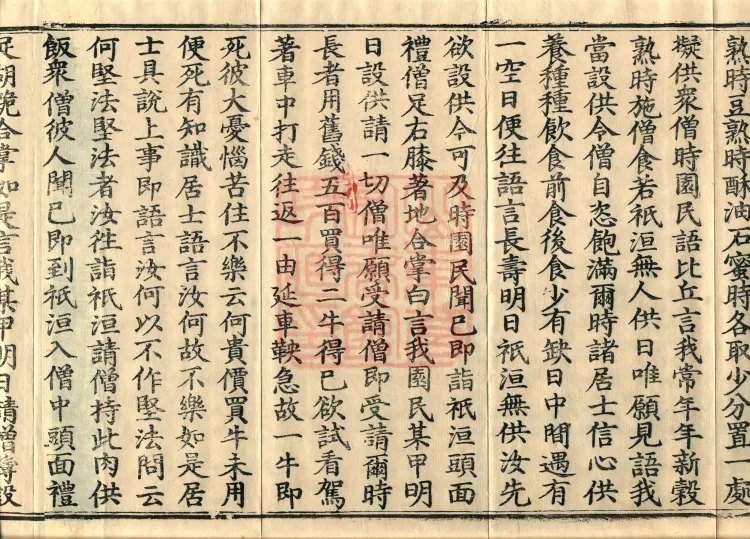 熟時豆熟時酥油石蜜時各取少分置一處
擬供衆僧時園民語比丘言我常年年新穀
熟時施僧食若祇洹無人供日唯願見語我
當設供令僧自恣飽滿爾時諸居士信心供
養種種飲食前食後食少有缺日中間遇有
一空日便往語言長壽明日祇洹無供汝先
欲設供今可及時園民聞已即詣祇洹頭面
禮僧足右膝著地合掌白言我園民某甲明
日設供請一切僧唯願受請僧即受請爾時
長者用舊錢五百買得二牛得已欲試看駕
著車中打走往返一由延車鞅急故一牛即
死彼大憂惱苦住不樂云何貴價買牛未用
便死有知識居士語言汝何故不樂如是居
士具說上事即語言汝何以不作堅法問云
何堅法堅法者汝往詣祇洹請僧持此肉供
飯衆僧彼人聞已即到祇洹入僧中頭面禮
足胡跪合掌如是言我某甲明日請僧